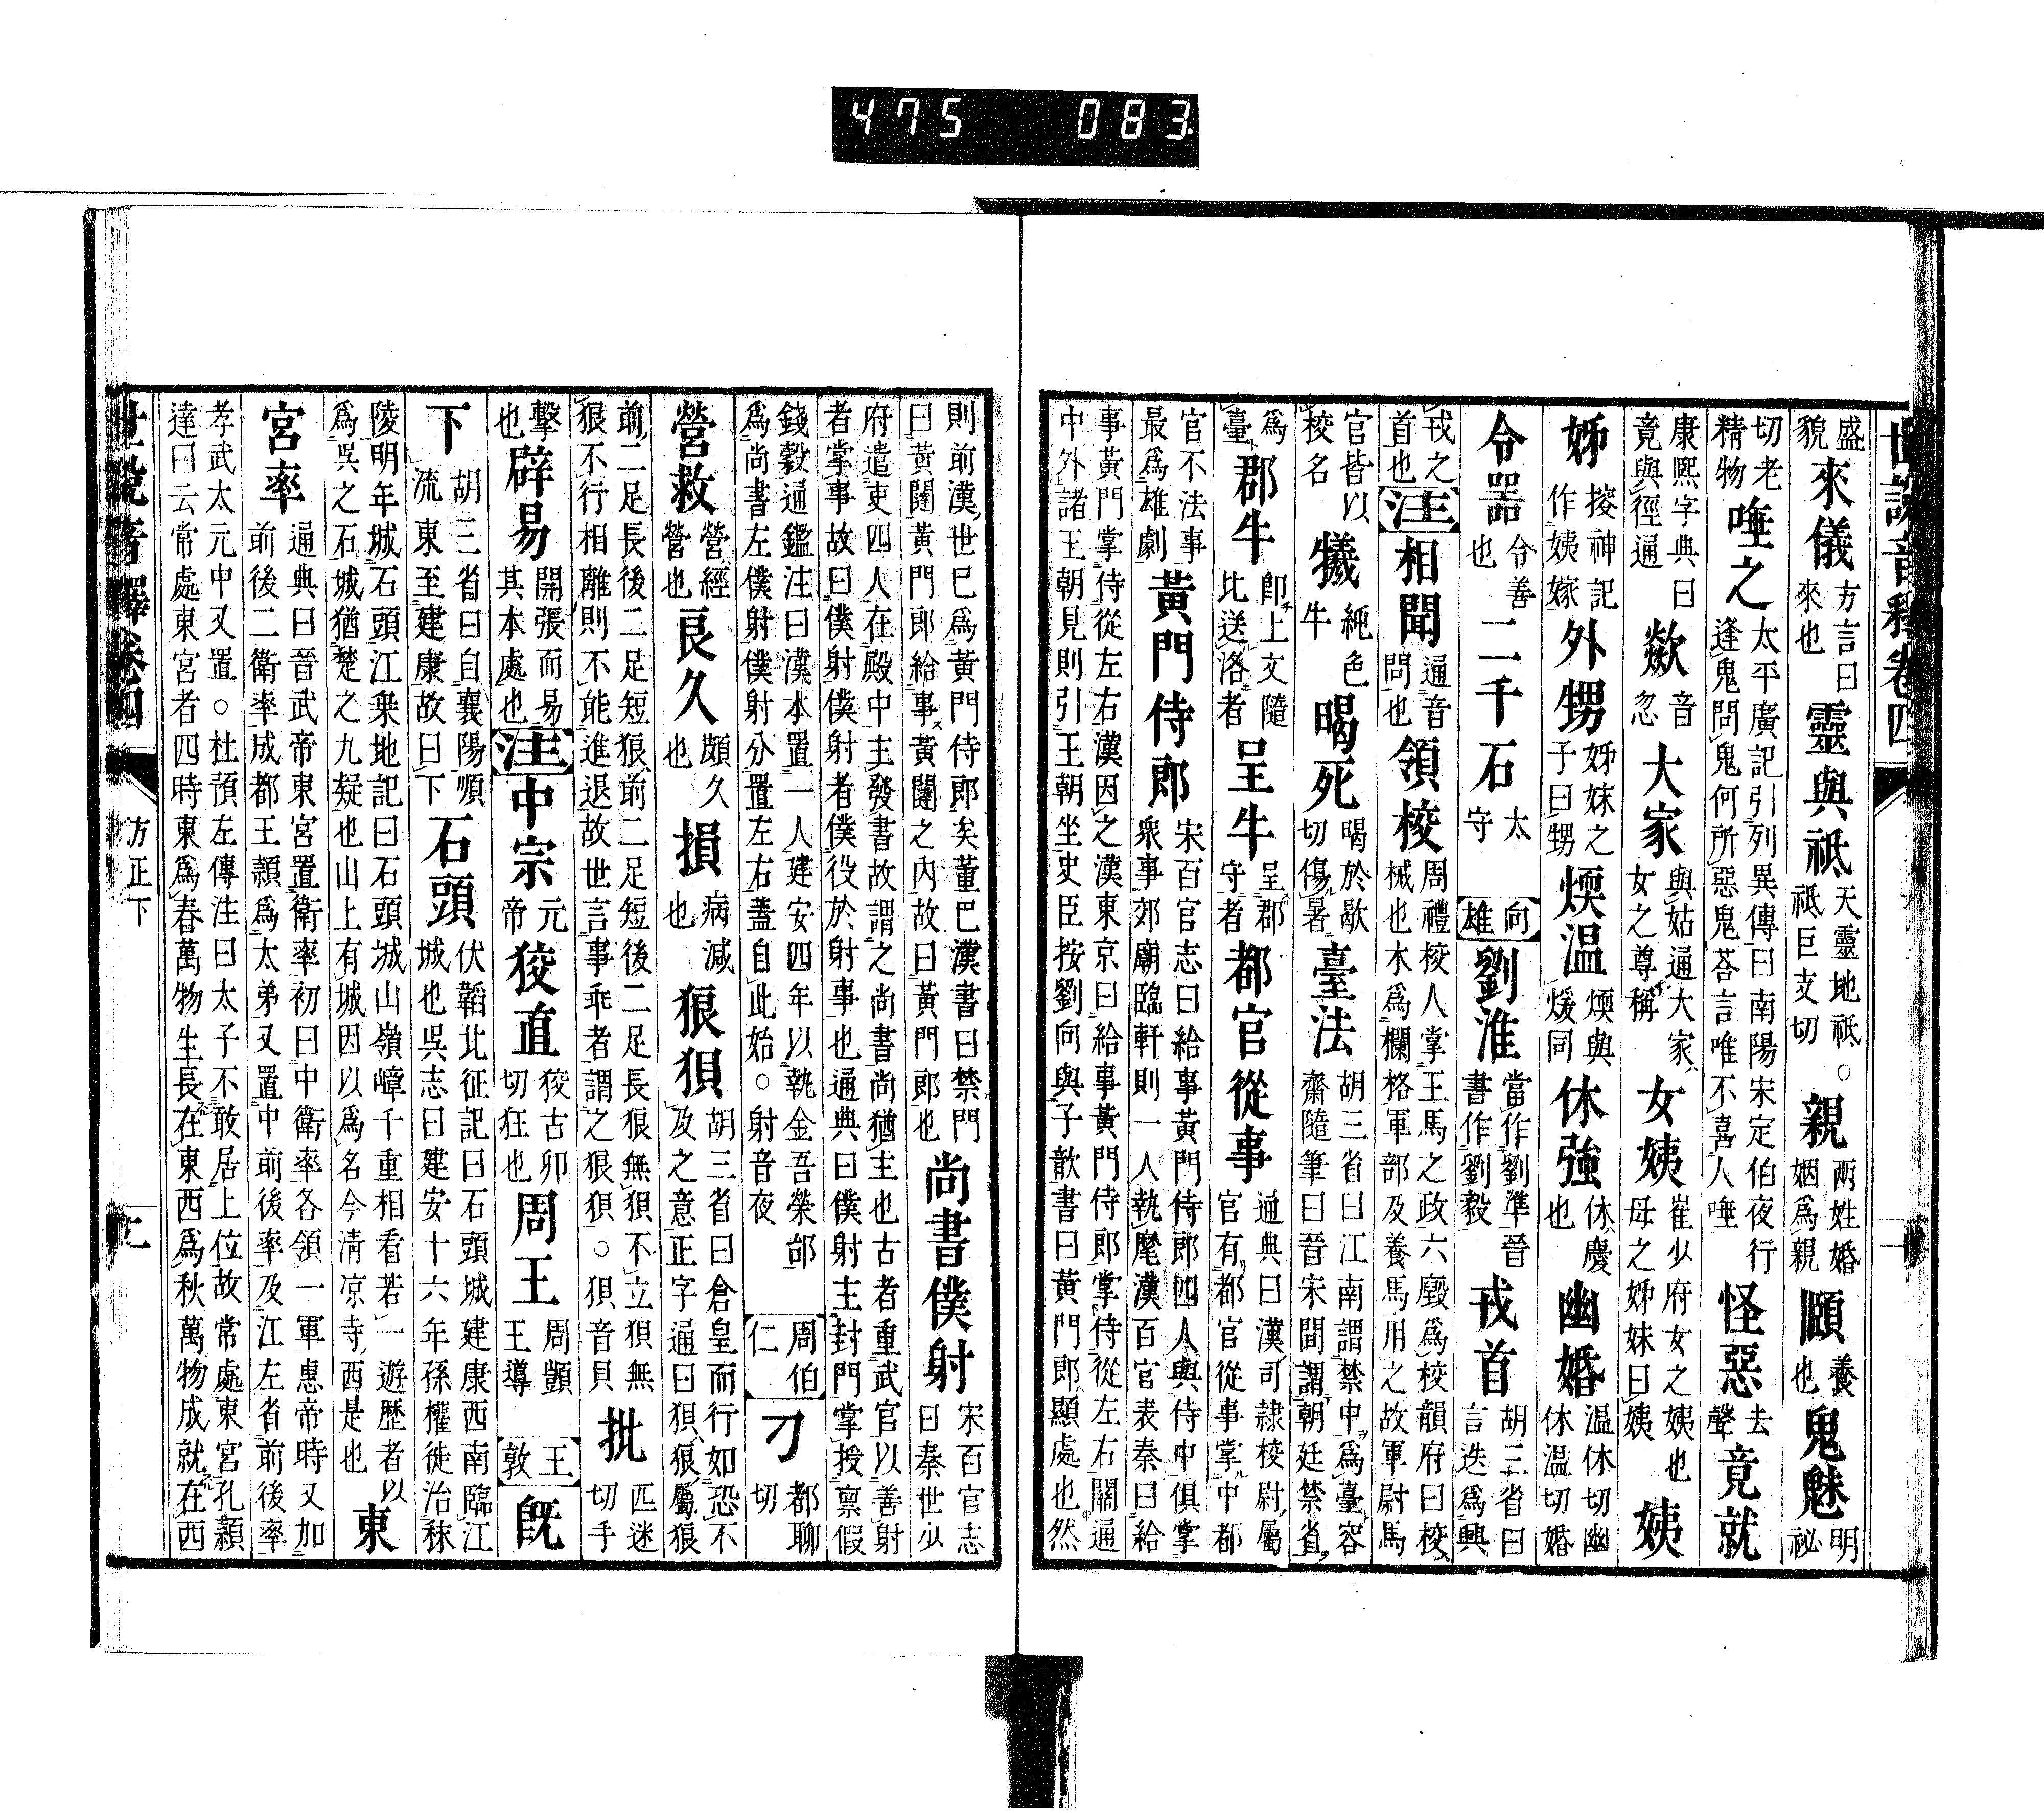 475 083
世說音釋卷四
盛貌來儀方言曰來也靈與祗天靈地祗。祗巨支切親兩姓婚姻爲親願養也鬼魅明祕
切老精物唾之太平廣記引列異傳曰南陽宋定伯夜行逢鬼問鬼何所惡鬼荅言唯不喜人唾怪惡去聲竟就
康熙字典曰竟與徑通歘音忽大家與姑通大家女之尊稱女姨崔少府女之姨也母之姊妹曰姨姨
姊搜神記作姨嫁外甥姊妹之子曰甥煗温煗與煖同休強休慶也幽婚温休切幽休温切婚
令器令善也二千石太守向雄劉淮當作劉準晉書作劉毅戎首胡三省曰言迭爲興
戎之首也注相聞通音問也領校周禮校人掌王馬之政六廄爲校韻府曰校械也木爲欄格軍部及養馬用之故軍尉馬
官皆以校名犧純色牛暍死暍於歇切傷暑臺法胡三省曰江南謂禁中爲臺容齋隨筆曰晉宋間謂朝廷禁省
爲臺郡牛卽上文隨比送洛者呈牛呈郡守者都官從事通典曰漢司隷校尉屬官有都官從事掌中都
官不法事最爲雄劇黃門侍郎宋百官志曰給事黃門侍郎四人與侍中俱掌衆事郊廟臨軒則一人執麾漢百官表秦曰給
事黃門掌侍從左右漢因之漢東京曰給事黃門侍郎掌侍從左右關通中外諸王朝見則引王朝坐史臣按劉向與子歆書曰黃門郎顯處也然
則前漢世已爲黃門侍郎矣董巴漢書曰禁門曰黃闥黃門郎給事黃闥之內故曰黃門郎也尚書僕射宋百官志曰秦世少
府遣吏四人在殿中主發書故謂之尚書尚猶主也古者重武官以善射者掌事故曰僕射僕射者僕役於射事也通典曰僕射主封門掌授禀假
錢穀通鑑注曰漢本置一人建安四年以執金吾榮郃爲尚書左僕射僕射分置左右蓋自此始。射音夜周伯仁刁都聊切
營救營經營也良久頗久也損病減也狼狽胡三省曰倉皇而行如恐不及之意正字通曰狽狼屬狼
前二足長後二足短狼前二足短後二足長狼無狽不立狽無狼不行相離則不能進退故世言事乖者謂之狼狽。狽音貝批匹迷切手
擊也辟易開張而易其本處也注中宗元帝狡直狡古卯切狂也周王周顗王導王敦旣
下胡三省曰自襄陽順流東至建康故曰下石頭伏韜北征記曰石頭城建康西南臨江城也吳志曰建安十六年孫權徙治秣
陵明年城石頭江乗地記曰石頭城山嶺嶂千重相看若一遊歷者以爲吳之石城猶楚之九疑也山上有城因以爲名今淸凉寺西是也東
宮率通典曰晉武帝東宮置衛率初曰中衛率各領一軍惠帝時又加前後二衛率成都王頴爲太弟又置中前後率及江左省前後率
孝武太元中又置。杜預左傳注曰太子不敢居上位故常處東宮孔頴達曰云常處東宮者四時東爲春萬物生長在東西爲秋萬物成就在西
世說音釋卷四
方正下